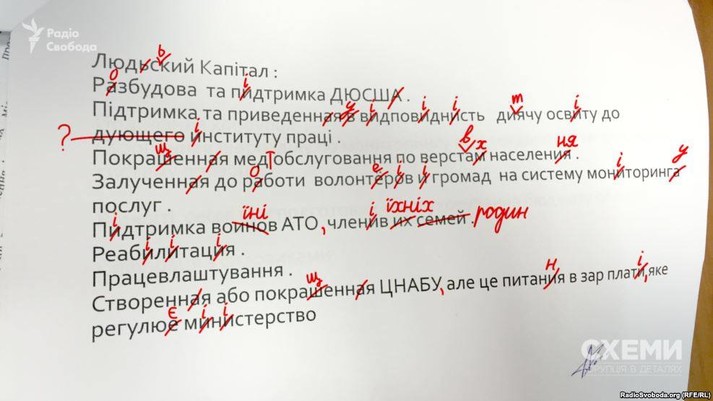 Радіо
Свобода
ь
Людьский Капітал :
о і
Разбудова та пидтримка ДЮСША .
у і і і т і
Підтримка та приведенная в видповиднисть диячу освиту до
? дующего институту праці .
щ в х ня
Покрашенная мед обслуговання по верстам населения .
о е і і і у
Залученная до работи волонтеров и громад на систему мониторинга
послуг .
і їні , і їхніх родин
Пидтримка воинов АТО членив их семей .
і і і
Реабилитация .
Працевлаштування .
щ , н і ,
Створенная або покрашенная ЦНАБУ але це питания в зар плати яке
є і і
регулюе министерство
СХЕМИ
КОРУПЦІЯ В ДЕТАЛЯХ
RadioSvoboda.org (RFE/RL)